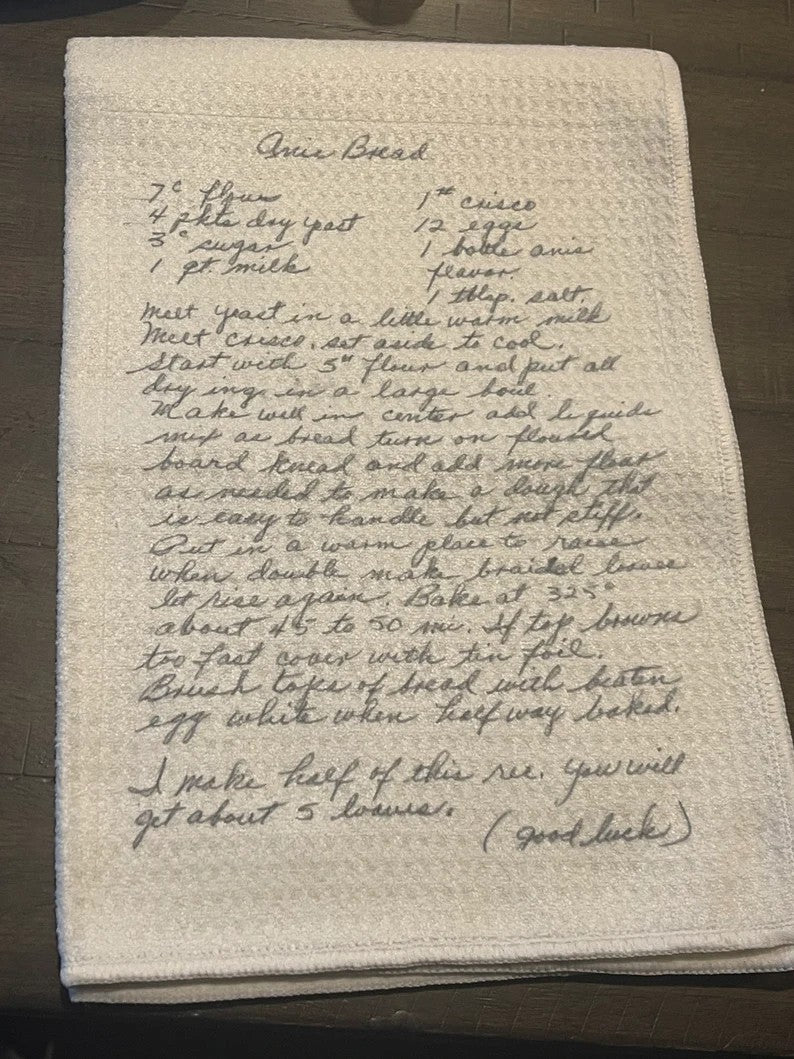 Anis Bread
7c flour
4 pkts dry yeast
3c sugar
1 qt. milk
1# crisco
12 eggs
1 bottle anis
flavor.
1 tblsp. salt.
Melt yeast in a little warm milk
Melt crisco, set aside to cool.
Start with 5# flour and put all
dry ing. in a large boul.
Make well in center add liquids
mix as bread turn on floured
board knead and add more flour
as needed to make a dough that
is easy to handle but not stiff.
Put in a warm place to raise
when double make braided loaves
let rise again. Bake at 325°
about 45 to 50 mi. If top browns
too fast cover with tin foil.
Brush tops of bread with beaten
egg white when half way baked.
I make half of this rec. you will
get about 5 loaves.
(good luck)